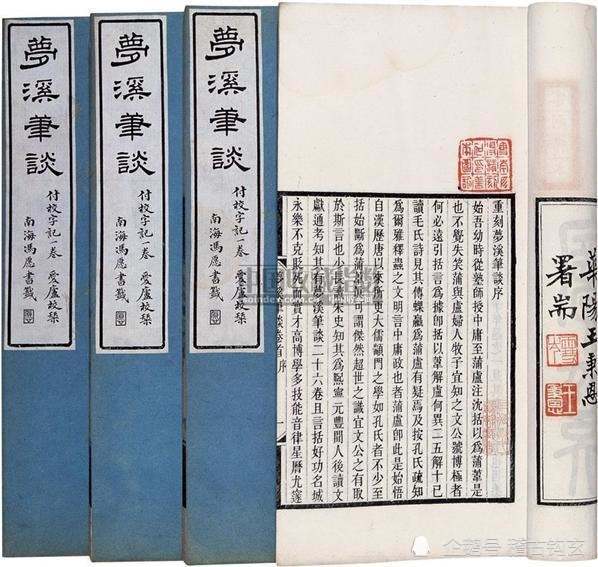 夢溪筆談
付校字記一卷 愛廬校栞
南海馮愿書籤
夢溪筆談
付校字記一卷 愛廬校栞
南海馮愿書籤
夢溪筆談
付校字記一卷 愛廬校栞
南海馮愿書籤
華陽王秉恩
署耑
重刻夢溪筆談序
始吾幼時從塾師授中庸至蒲盧注沈括以為蒲葦是
也不覺失笑蒲與盧婦人牧子宜知之文公號博極者
何必遠引括言為據卽括以葦解盧何異二五解十已
讀毛氏詩見其傳蜾蠃為蒲盧有疑焉及按孔氏疏知
為爾雅釋蟲之文明言中庸政也者蒲盧卽此是始悟
自漢歷唐以來更大儒顓門之學如孔氏者亦不少
括始斷為蒲可謂傑然超世之識宜文公之有取
於斯言也長考宋史知其為熙寧元豐間人後讀文
獻通考知其有夢溪筆談二十六卷且言括好功名城
永樂不克貶死而實才高博學多技能音律星曆尤邃
企鹅号 稽古钩玄